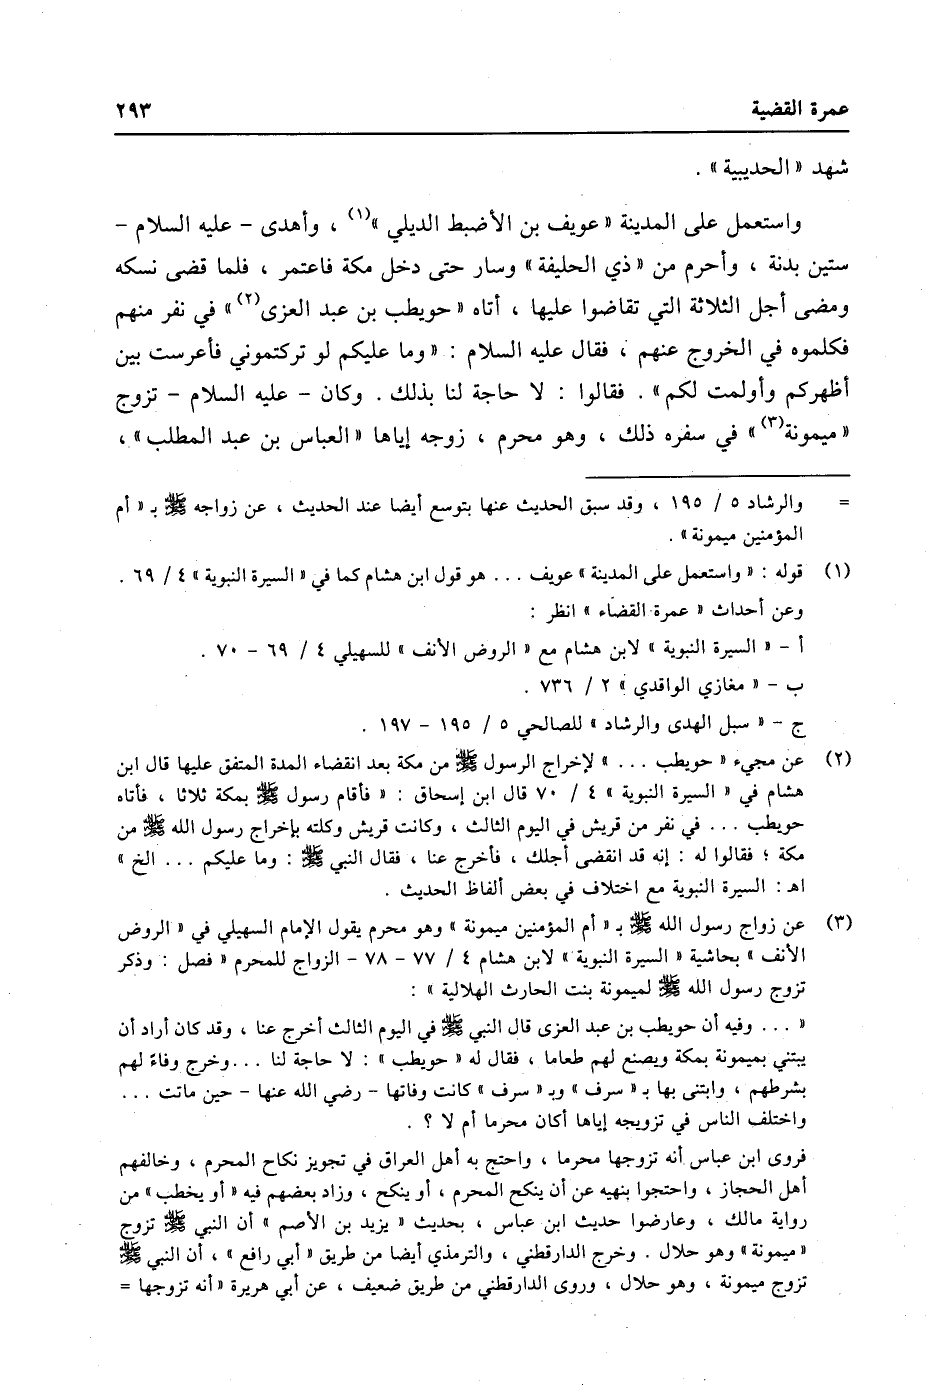 عمرة القضية ٢٩٣
شهد « الحديبية » .
واستعمل على المدينة « عويف بن الأضبط الديلي »(١) ، وأهدى – عليه السلام –
ستين بدنة ، وأحرم من « ذي الحليفة » وسار حتى دخل مكة فاعتمر ، فلما قضى نسكه
ومضى أجل الثلاثة التي تقاضوا عليها ، أتاه « حويطب بن عبد العزى(٢) » في نفر منهم
فكلموه في الخروج عنهم ، فقال عليه السلام : « وما عليكم لو تركتموني فأعرست بين
أظهركم وأولمت لكم » . فقالوا : لا حاجة لنا بذلك . وكان – عليه السلام – تزوج
« ميمونة(٣) » في سفره ذلك ، وهو محرم ، زوجه إياها « العباس بن عبد المطلب » ،
= والرشاد ٥ / ١٩٥ ، وقد سبق الحديث عنها بتوسع أيضا عند الحديث ، عن زواجه ﷺ بـ « أم
المؤمنين ميمونة » .
(١) قوله : « واستعمل على المدينة » عويف ... هو قول ابن هشام كما في « السيرة النبوية » ٤ / ٦٩ .
وعن أحداث « عمرة القضاء » انظر :
أ – « السيرة النبوية » لابن هشام مع « الروض الأنف » للسهيلي ٤ / ٦٩ – ٧٠ .
ب – « مغازي الواقدي » ٢ / ٧٣٦ .
ج – « سبل الهدى والرشاد » للصالحي ٥ / ١٩٥ – ١٩٧ .
(٢) عن مجيء « حويطب ... » لإخراج الرسول ﷺ من مكة بعد انقضاء المدة المتفق عليها قال ابن
هشام في « السيرة النبوية » ٤ / ٧٠ قال ابن إسحاق : « فأقام رسول ﷺ بمكة ثلاثا ، فأتاه
حويطب ... في نفر من قريش في اليوم الثالث ، وكانت قريش وكلته بإخراج رسول الله ﷺ من
مكة ؛ فقالوا له : إنه قد انقضى أجلك ، فأخرج عنا ، فقال النبي ﷺ : وما عليكم ... الخ »
اهـ : السيرة النبوية مع اختلاف في بعض ألفاظ الحديث .
(٣) عن زواج رسول الله ﷺ بـ « أم المؤمنين ميمونة » وهو محرم يقول الإمام السهيلي في « الروض
الأنف » بحاشية « السيرة النبوية » لابن هشام ٤ / ٧٧ – ٧٨ – الزواج للمحرم « فصل : وذكر
تزوج رسول الله ﷺ لميمونة بنت الحارث الهلالية » :
« ... وفيه أن حويطب بن عبد العزى قال النبي ﷺ في اليوم الثالث أخرج عنا ، وقد كان أراد أن
يبتني بميمونة بمكة ويصنع لهم طعاما ، فقال له « حويطب » : لا حاجة لنا ...وخرج وفاءً لهم
بشرطهم ، وابتنى بها بـ « سرف » وبـ « سرف » كانت وفاتها – رضي الله عنها – حين ماتت ...
واختلف الناس في تزويجه إياها أكان محرما أم لا ؟ .
فروى ابن عباس أنه تزوجها محرما ، واحتج به أهل العراق في تجويز نكاح المحرم ، وخالفهم
أهل الحجاز ، واحتجوا بنهيه عن أن ينكح المحرم ، أو ينكح ، وزاد بعضهم فيه « أو يخطب » من
رواية مالك ، وعارضوا حديث ابن عباس ، بحديث « يزيد بن الأصم » أن النبي ﷺ تزوج
« ميمونة » وهو حلال . وخرج الدارقطني ، والترمذي أيضا من طريق « أبي رافع » ، أن النبي ﷺ
تزوج ميمونة ، وهو حلال ، وروى الدارقطني من طريق ضعيف ، عن أبي هريرة « أنه تزوجها =